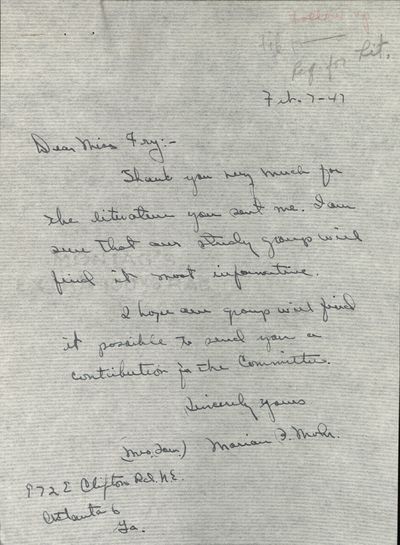 Lit
Req for Lit.
Feb. 7-47
Dear Miss Fry:-
Thank you very much for
the literature you sent me. I am
sure that our study group will
find it most informative.
I hope our group will find
it possible to send you a
contribution for the Committee.
Sincerely yours
Marian F. Mohr.
972 E Clifton Rd. N.E.
Atlanta 6
Ga.